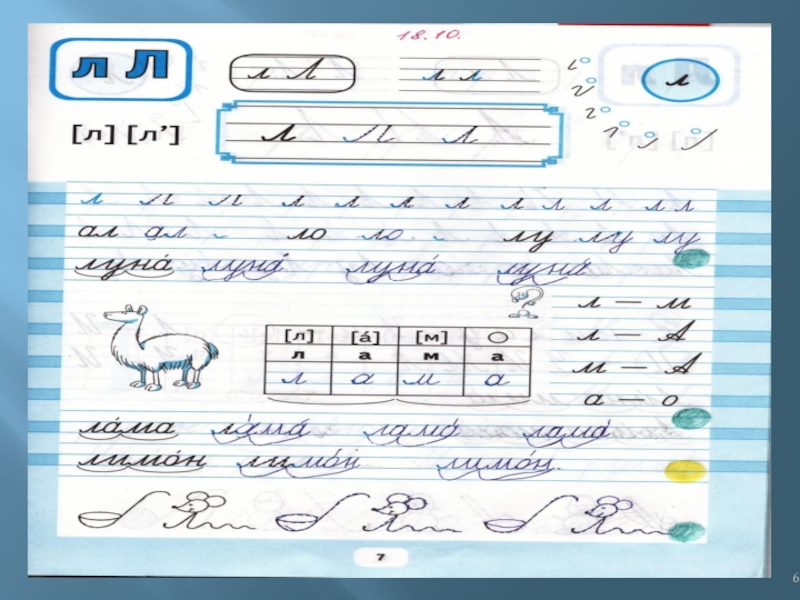 18.10.
л Л л Л л л л
[л] [л’] л Л Л
л Л Л л л л л л л л л л
ал ал ло ло лу лу лу
луна́ луна́ луна́ луна́
л — м
[л] [а́] [м]
л — А
л а м а
л а м а
м — А
а — о
ла́ма ла́ма́ лама́ лама́
лимо́н лимо́н лимо́н.
7
6